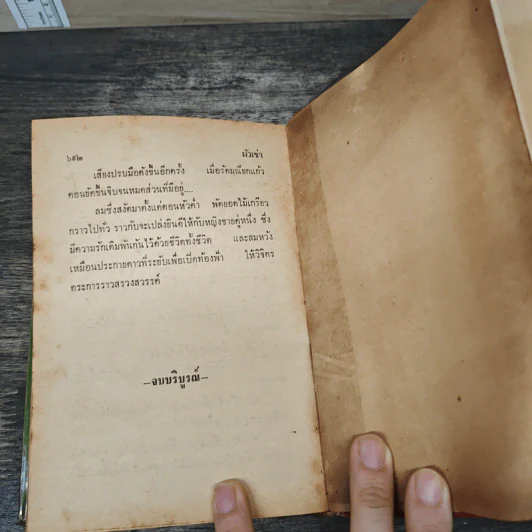 ๖๕๒ ผัวเช่า
เสียงปรบมือดังขึ้นอีกครั้ง เมื่อรัตมณียกแก้ว
ดอนยัดขึ้นจิบจนหมดส่วนที่มีอยู่....
ลมซึ่งสงัดมาตั้งแต่ตอนหัวค่ำ พัดยอดไม้เกรียว
กราวไปทั่ว ราวกับจะเปล่งยินดีให้กับหญิงชายคู่หนึ่ง ซึ่ง
มีความรักเดิมพันกันไว้ด้วยชีวิตทั้งชีวิต และสมหวัง
เหมือนประกายดาวที่ระยับเพื่อเบิ่คท้องฟ้า ให้วิจิตร
ตระการราวสรวงสวรรค์
—จบบริบูรณ์—